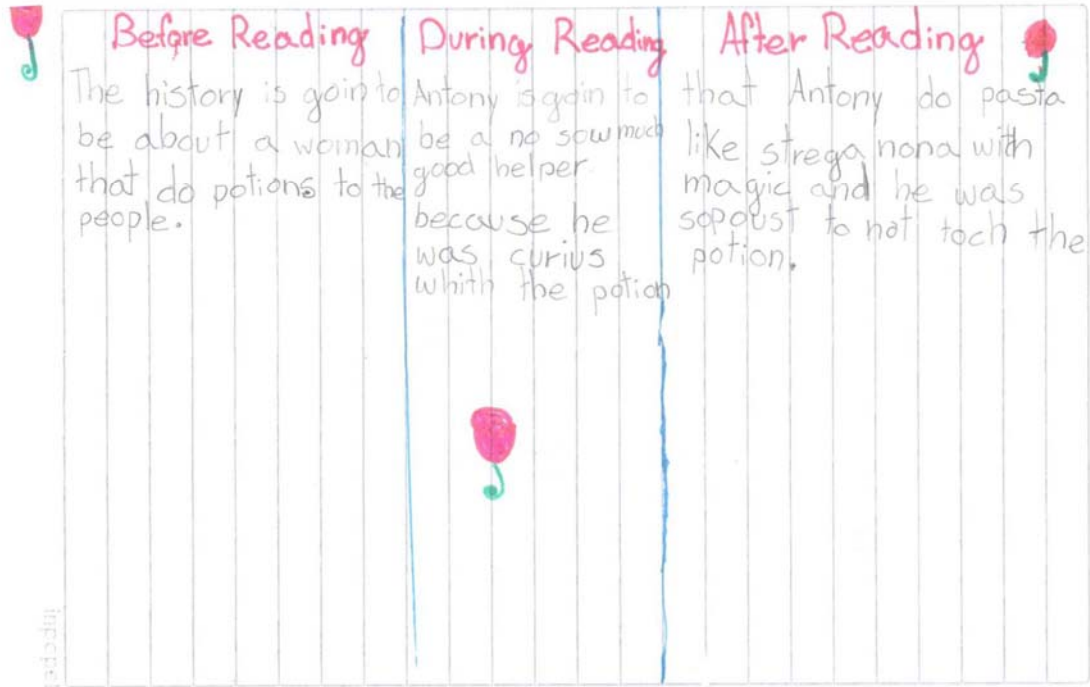 Before Reading
The history is goin to
be about a woman
that do potions to the
people.
During Reading
Antony is goin to
be a no sow much
good helper.
because he
was curius
whith the potion
After Reading
that Antony do pasta
like strega nona with
magic and he was
sopoust to not toch the
potion.